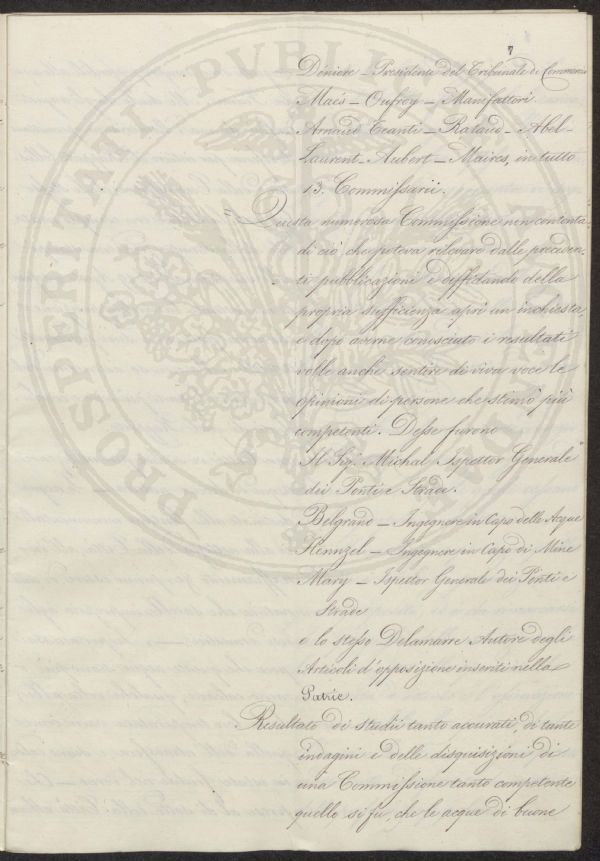 7
Déniere – Presidente del Tribunale di Commercio
Maës – Oufroy – Manifattori
Arnaud Teanti – Rataud – Abel –
Laurent – Aubert – Maires, in tutto
13. Commissarii.
Questa numerosa Commissione non contenta
di ciò che poteva rilevare dalle preceden-
ti pubblicazioni e diffidando della
propria sufficienza aprì un inchiesta,
e dopo averne conosciuto i resultati
volle anche sentire di viva voce le
opinioni di persone che stimò più
competenti. Desse furono
Il Sig. Michal Ispettor Generale
dei Ponti e Strade.
Belgrand – Ingegnere in Capo delle Acque
Hennzel – Ingegnere in Capo di Mine
Mary – Ispettor Generale dei Ponti e
Strade
e lo stesso Delamarre Autore degli
Articoli d'opposizione inseriti nella
Patrie.
Resultato di studii tanto accurati, di tante
indagini e delle disquisizioni di
una Commissione tanto competente
quello si fu, che le acque di buone
PROSPERITATI PVBLI